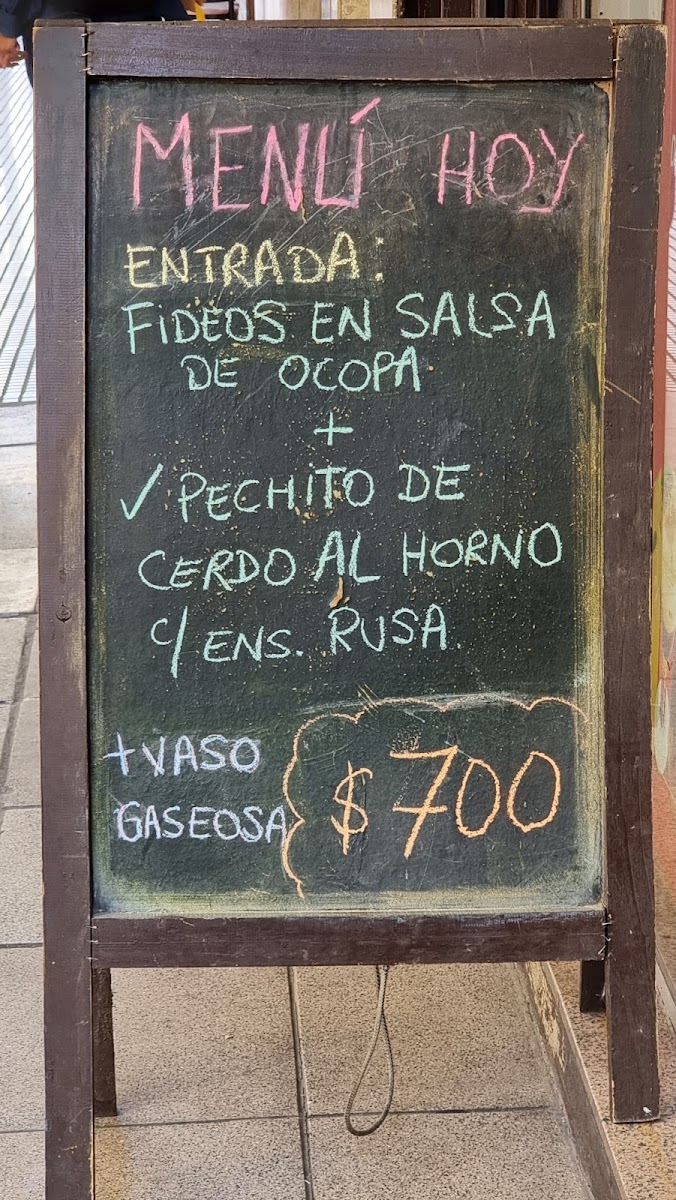 MENÚ HOY
ENTRADA:
FIDEOS EN SALSA
DE OCOPA
+
✓ PECHITO DE
CERDO AL HORNO
C/ ENS. RUSA
+ VASO
GASEOSA
$ 700